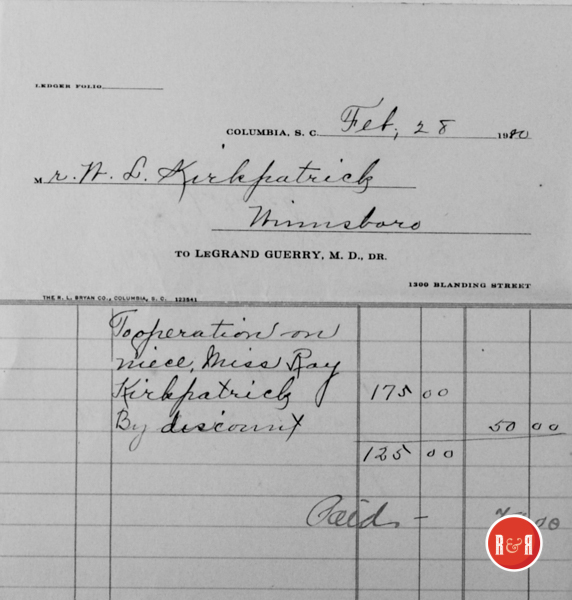 LEDGER FOLIO
COLUMBIA, S. C. Feb, 28 19
Mr. W. L. Kirkpatrick
Winnsboro
TO LEGRAND GUERRY, M. D., DR.
1300 BLANDING STREET
THE R. L. BRYAN CO., COLUMBIA, S. C. 123841
To operation on
niece, Miss Ray
Kirkpatrick 175 00
By discount 50 00
125 00
Paid -
R&R